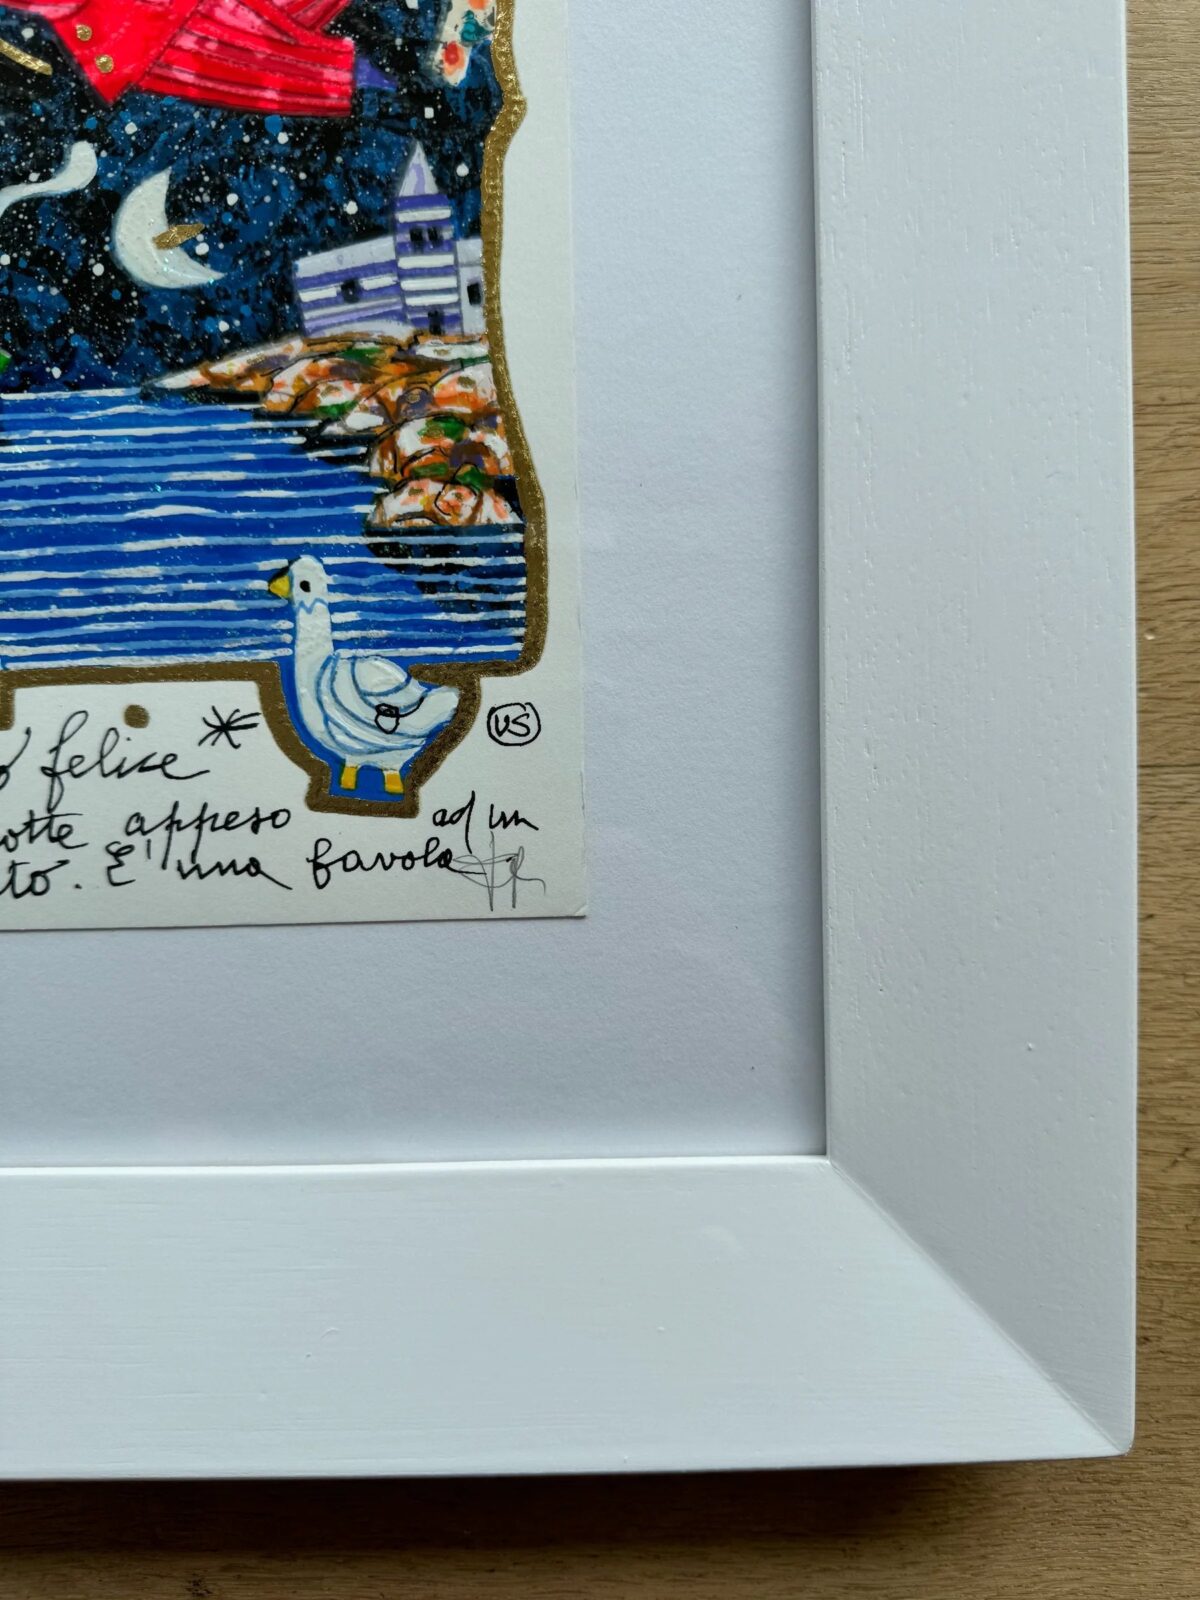 felice *
VS
otte appeso ad un
to. E' una favola